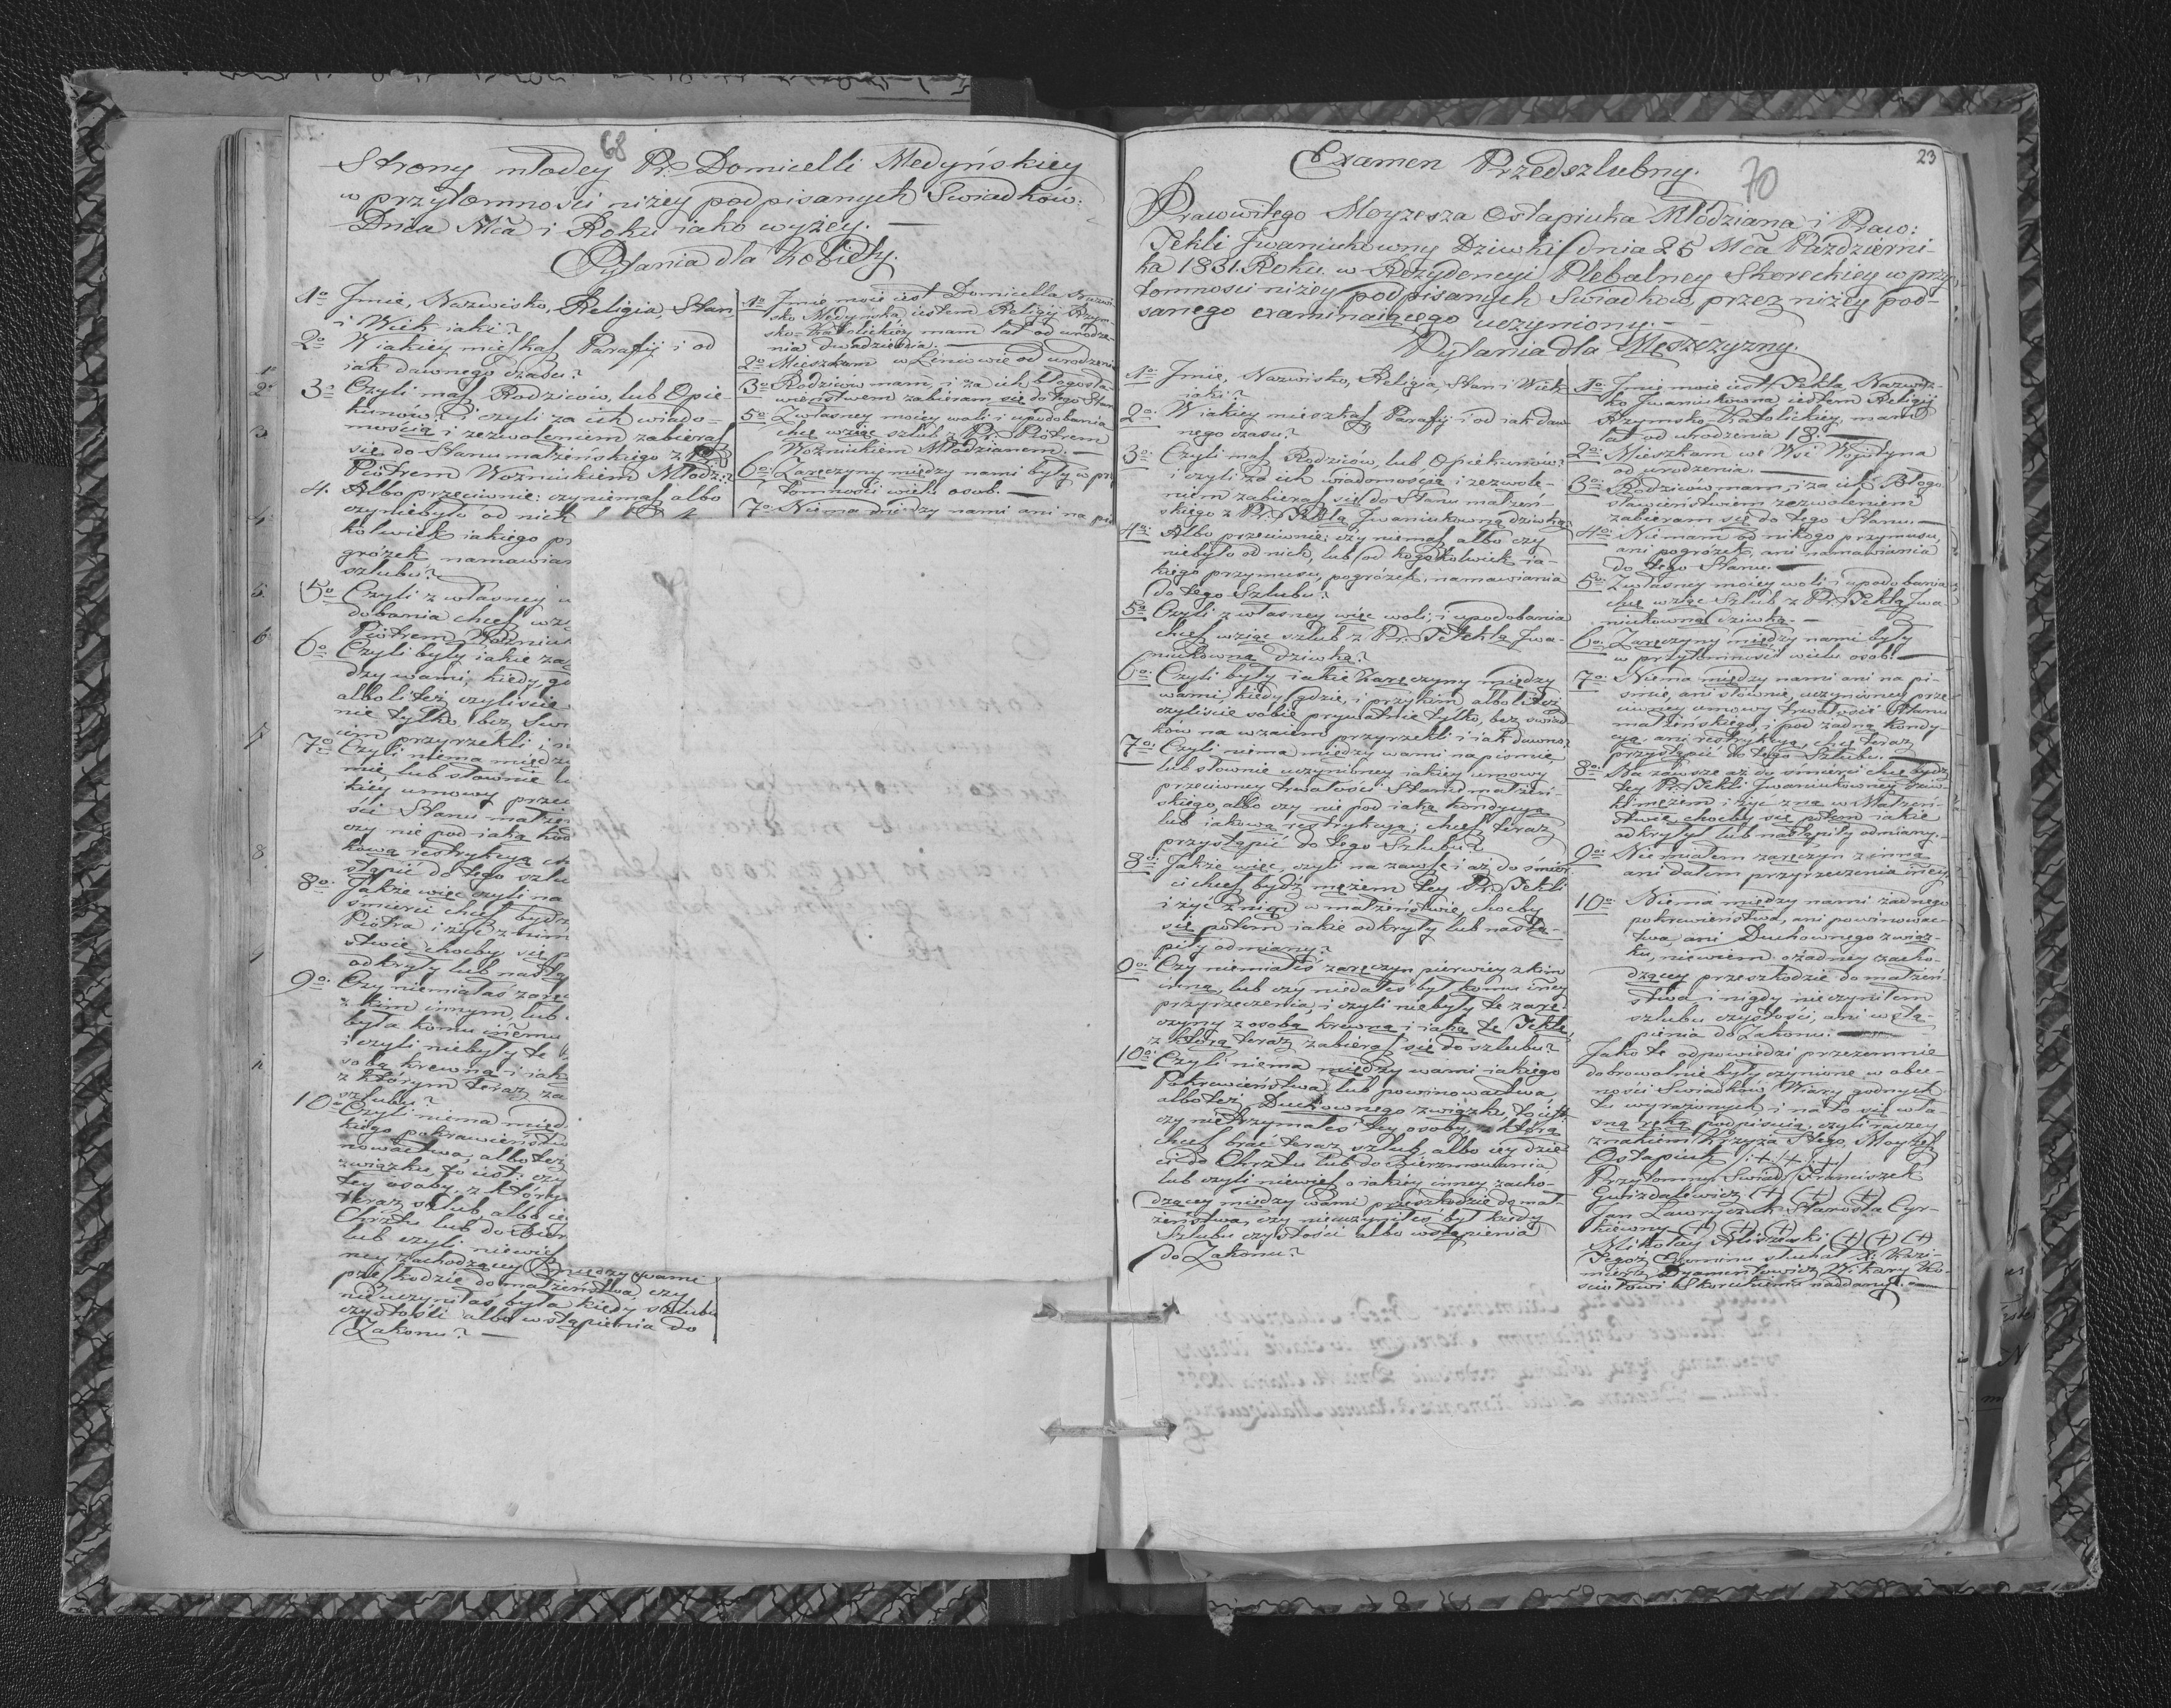 68
Strony młodey Pr: Domicelli Medyńskiey
w przytomności niżey podpisanych Swiadków.
Dnia Mca i Roku iako wyżey. —
Pytania dla Kobiety.
1o Jmie, Nazwisko, Religia, Stan
i Wiek iaki?
2o W iakiey mieszkasz Parafij i od
iak dawnego czasu?
3o Czyli masz Rodziców, lub Opie-
kunów? i czyli za ich wiado-
mością i zezwoleniem zabierasz
się do Stanu małżeńskiego z Pr:
Piotrem Wozniukiem Młodz:?
4. Albo przeciwnie: czyniemasz albo
czyniebyło od nich
kolwiek iakiego
gróżek namawian
szlubu?
5o Czyli z własney
dobania chcesz wzi
Piotrem Wozniuk
6o Czyli były iakie za
dzy wami, kiedy, gd
albo li też czyliście
nie tylko, bez Swi
iem przyrzekli i
7o Czyli niema między
mie, lub słownie
kiey umowy prze
ści Stanu małże
czy nie pod iaką kon
kową restrykcyą
stąpić do tego szlu
8o Jakże więc czyli na
smierci chcesz bydź
Piotra i żyć z nim
stwie choćby się p
odkryły lub nastą
9o Czy niemiałaś zarę
z kim innym, lub
była komu innemu
i czyli niebyły te
sobą krewną i iak
z którym teraz za
szlubu?
10o Czyli niema międ
kiego pokrewieństw
nowactwa, albo też
związku, to iest: czy
tey osoby, z który
teraz szlub, albo iey
Chrztu lub do Bier
lub czyli niewiesz
ney zachodzącey między wami
przeszkodzie do małżeństwa, czy
nieuczyniłaś była kiedy szlubu
czystości albo wstąpienia do
Zakonu? —
1o Jmie moie iest Domicella Nazwi-
sko Medyńska, iestem Religij Rzym-
sko-Katolickiey mam lat od urodze-
nia dwadzieścia. —
2o Mieszkam w Leniowie od urodzenia
3o Rodziców mam, i za ich błogosła-
wieństwem zabieram się do tego Stan
5o Z własney moiey woli i upodobania
chcę wziąć szlub z Pr: Piotrem
Wozniukiem Młodzianem. —
6o Zaręczyny między nami były w prz
tomności wielu osob. —
7o Niema między nami ani na pi
23
70
Examen Przedszlubny.
Prawowitego Moyzesza Ostapiuka Młodziana i Praw:
Tekli Jwaniukowny Dziwki dnia 25 Mca Październi-
ka 1831. Roku. w Rezydencyi Plebalney Skoreckiey w przy-
tomności niżey podpisanych Swiadków, przez niżey pod-
sanego examinaiącego uczyniony. —
Pytania dla Męszczyzny.
1o Jmie, Nazwisko, Religia, Stan i Wiek
iaki?
2o W iakiey mieszkasz Parafij i od iak daw
nego czasu?
3o Czyli masz Rodziców, lub Opiekunów?
i czyli za ich wiadomością i zezwole-
niem zabierasz się do Stanu małżeń-
skiego z Pr: Teklą Jwaniukowną dziwką?
4o Albo przeciwnie: czy niemasz albo czy
niebyło od nich, lub od kogokolwiek ia-
kiego przymusu, pogróżek, namawiania
do tego Szlubu?
5o Czyli z własney więc woli, i upodobania
chcesz wziąć szlub z Pr: Teklą Jwa-
niukowną dziwką?
6o Czyli były iakie Zaręczyny między
wami, kiedy, gdzie, i przy kim albo li też
czyliście sobie prywatnie tylko, bez swiad-
ków na wzaiem przyrzekli i iak dawno?
7o Czyli niema między wami na pismie,
lub słownie uczynioney iakiey umowy
przeciwney trwałości Stanu małżeń-
skiego, albo czy nie pod iaką kondycyą
lub iakową restrykcyą, chcesz teraz
przystąpić do tego Szlubu?
8o Jakże więc, czyli na zawsze i aż do śmier-
ci chcesz bydź mężem tey Pr: Tekli
i żyć z nią w małżeństwie, choćby
się potem iakie odkryły lub nastą-
piły odmiany?
9o Czy niemiałeś zaręczyn pierwiey z kim
inną, lub czy niedałeś był komu inney
przyrzeczenia, i czyli niebyły te zarę-
czyny z osobą krewną i iaką tey Tekli,
z którą teraz zabierasz się do szlubu?
10o Czyli niema między wami iakiego
Pokrewieństwa lub powinowactwa,
albo też Duchownego związku, to iest
czy nie trzymałeś tey osoby, z którą
chcesz brać teraz szlub, albo iey dzie-
ci do Chrztu lub do Bierzmowania,
lub czyli niewiesz o iakiey inney zacho-
dzącey między wami przeszkodzie do mał-
żeństwa, czy nieuczyniłeś był kiedy
Szlubu czystości albo wstąpienia
do Zakonu?
1o Jmie moie iest Tekla, Nazwis-
ko Jwaniukowna iestem Religij
Rzymsko-Katolickiey, mam
lat od urodzenia 18. —
2o Mieszkam we Wsi Woytyna
od urodzenia. —
3o Rodziców mam, i za ich Błogo-
sławieństwem zezwoleniem
zabieram się do tego Stanu. —
4o Niemam od nikogo przymusu,
ani pogróżek, ani namawiania
do tego Stanu. —
5o Z własney moiey woli i upodobania
chcę wziąć Szlub z Pr: Teklą Jwa-
niukowną dziwką. —
6o Zaręczyny między nami były
w przytomności wielu osob. —
7o Niema między nami ani na pi-
śmie, ani słownie, uczynioney prze-
ciwney umowy trwałości Stanu
małżeńskiego, i pod żadną kondy-
cyą, ani restrykcyą, chcę teraz
przystąpić do tego Szlubu. —
8o Na zawsze aż do śmierci chcę bydź
tey Pr: Tekli Jwaniukowney dziw-
ki mężem i żyć z nią w Małżeń-
stwie, choćby się potem iakie
odkryły lub nastąpiły odmiany. —
9o Niemiałem zaręczyn z inną
ani dałem przyrzeczenia iney
10o Niema między nami żadnego
pokrewieństwa, ani powinowac-
twa, ani Duchownego związ-
ku, niewiem o żadney zacho-
dzącey przeszkodzie do małżeń-
stwa i nigdy nieczyniłem
szlubu czystości, ani wstą-
pienia do Zakonu. —
Jako te odpowiedzi przezemnie
dobrowolnie były czynione w obec-
ności Swiadków Wiary godnych
tu wyrażonych i na to się wła-
sną ręką podpisuię, czyli raczey
znakiem Krzyża Stego, Moyżesz
Ostapiuk /:+/+/:+/
Przytomny Swiad: Franciszek
(+) (+) (+)
Jan Ławryszuk Starosta Cyr-
kiewny (+) (+) (+)
Mikołay (+) (+) (+)
Tegoż Examinu słuchał X: Kazi-
mierz Dyamentowicz Wikary Ko-
ściołowi Skoreckiemu naddany. —